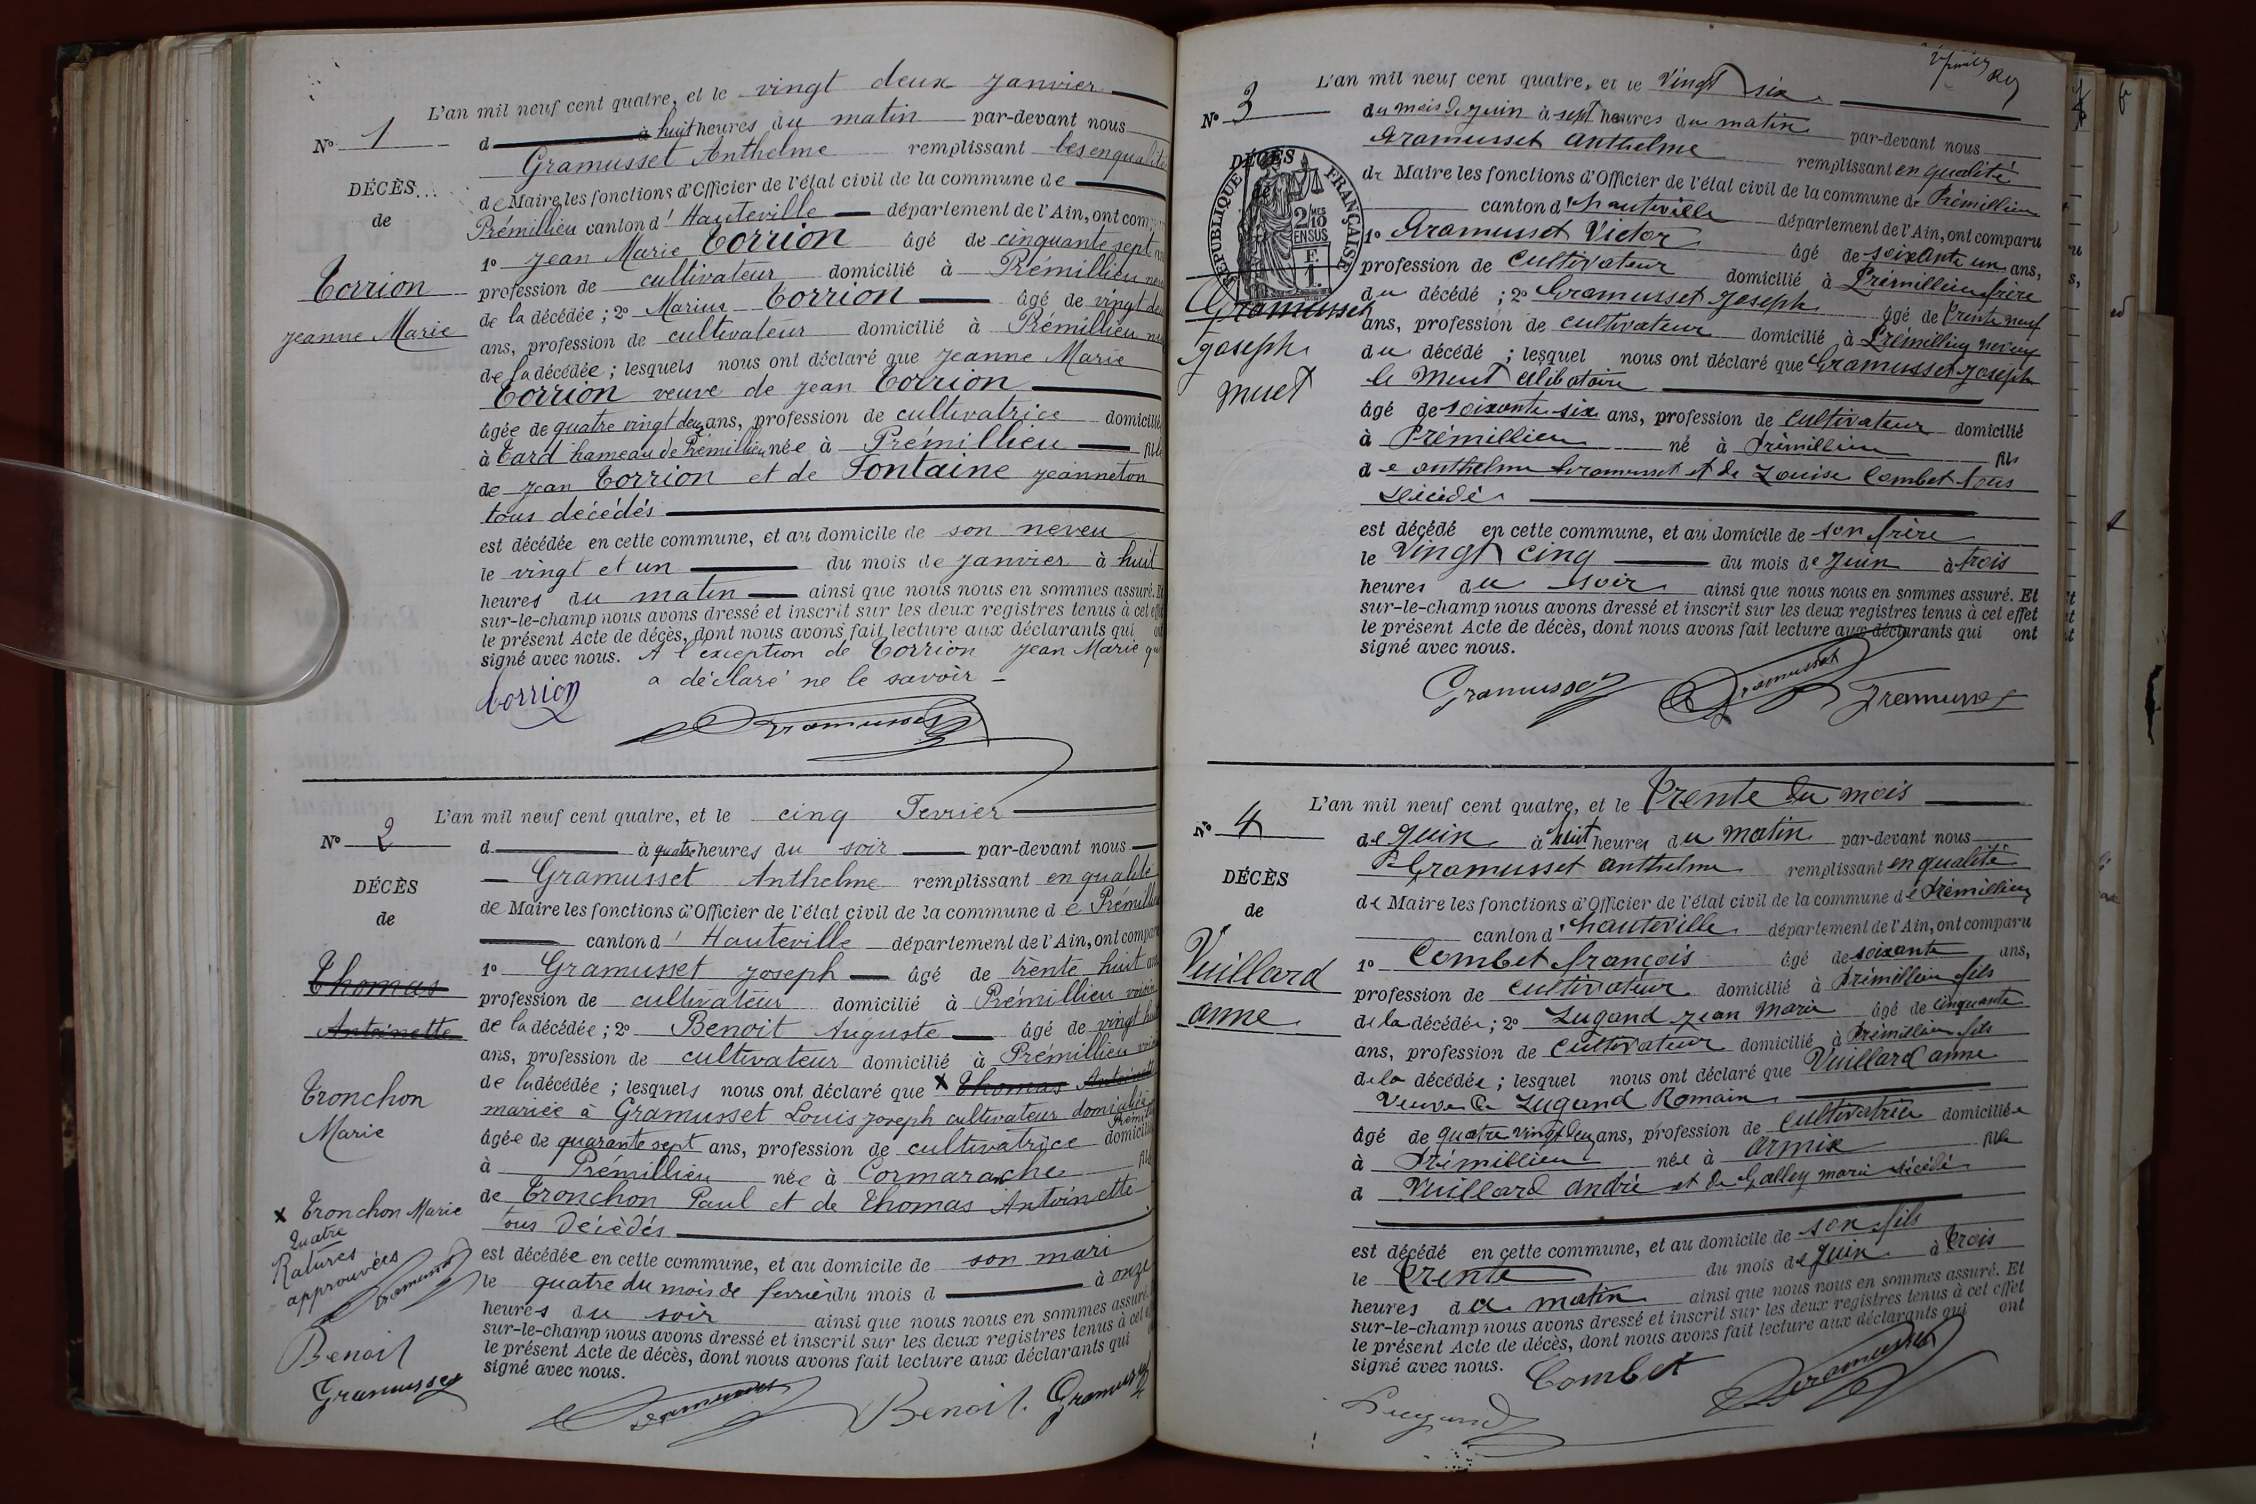 L'an mil neuf cent quatre, et le vingt deux janvier
N° 1
d à huit heures du matin par-devant nous
Gramusset Anthelme remplissant les en qualité
DÉCÈS
de
de Maire les fonctions d'Officier de l'état civil de la commune de
Prémillieu canton d'Hauteville département de l'Ain, ont com
1° Jean Marie Torrion âgé de cinquante sept
Torrion
Jeanne Marie
profession de cultivateur domicilié à Prémillieu neveu
de la décédée ; 2° Marius Torrion âgé de vingt deux
ans, profession de cultivateur domicilié à Prémillieu
de la décédée ; lesquels nous ont déclaré que Jeanne Marie
Torrion veuve de Jean Torrion
âgée de quatre vingt deux ans, profession de cultivatrice domicilié
à Tard hameau de Prémillieu née à Prémillieu fille
de Jean Torrion et de Fontaine Jeanneton
tous décédés
est décédée en cette commune, et au domicile de son neveu
le vingt et un du mois de janvier à huit
heures du matin ainsi que nous nous en sommes assuré. Et
sur-le-champ nous avons dressé et inscrit sur les deux registres tenus à cet effet
le présent Acte de décès, dont nous avons fait lecture aux déclarants qui ont
signé avec nous. A l'exception de Torrion Jean Marie qui
a déclaré ne le savoir
Torrion
Gramusset
L'an mil neuf cent quatre, et le cinq Fevrier
N° 2
d à quatre heures du soir par-devant nous
Gramusset Anthelme remplissant en qualité
DÉCÈS
de
de Maire les fonctions d'Officier de l'état civil de la commune de Prémillieu
canton d'Hauteville département de l'Ain, ont comparu
1° Gramusset Joseph âgé de trente huit ans
Thomas
Antoinette
profession de cultivateur domicilié à Prémillieu voisin
de la décédée ; 2° Benoit Auguste âgé de vingt huit
ans, profession de cultivateur domicilié à Prémillieu voisin
de la décédée ; lesquels nous ont déclaré que x Thomas Antoinette
mariée à Gramusset Louis Joseph cultivateur domicilié
Prémillieu
Tronchon
Marie
âgée de quarante sept ans, profession de cultivatrice domicilié
à Prémillieu née à Cormaranche fille
de Tronchon Paul et de Thomas Antoinette
tous décédés
x Tronchon Marie
Quatre
Ratures
approuvées
Gramusset
Benoit
Gramusset
est décédée en cette commune, et au domicile de son mari
le quatre du mois de fevrier du mois d à onze
heures du soir ainsi que nous nous en sommes assuré.
sur-le-champ nous avons dressé et inscrit sur les deux registres tenus à cet
le présent Acte de décès, dont nous avons fait lecture aux déclarants qui
signé avec nous.
Gramusset Benoit Gramusset
L'an mil neuf cent quatre, et le vingt six
N° 3
du mois de Juin à sept heures du matin par-devant nous
Gramusset Anthelme remplissant en qualité
DÉCÈS
RÉPUBLIQUE FRANÇAISE
2 MES
10
EN SUS
de Maire les fonctions d'Officier de l'état civil de la commune de Prémillieu
canton d'hauteville département de l'Ain, ont comparu
1° Gramusset Victor âgé de soixante un ans,
profession de cultivateur domicilié à Prémillieu frère
du décédé ; 2° Gramusset Joseph âgé de trente neuf
ans, profession de cultivateur domicilié à Prémillieu neveu
Gramusset
Joseph
muet
du décédé ; lesquel nous ont déclaré que Gramusset Joseph
le Meut célibataire
âgé de soixante six ans, profession de cultivateur domicilié
à Prémillieu né à Prémillieu fils
de anthelme Gramusset et de Louise Combet tous
décédé
est décédé en cette commune, et au domicile de son frère
le vingt cinq du mois de juin à trois
heures du soir ainsi que nous nous en sommes assuré. Et
sur-le-champ nous avons dressé et inscrit sur les deux registres tenus à cet effet
le présent Acte de décès, dont nous avons fait lecture aux déclarants qui ont
signé avec nous.
Gramusset Gramusset Gramusset
L'an mil neuf cent quatre, et le Trente du mois
N° 4
de Juin à huit heures du matin par-devant nous
Gramusset anthelme remplissant en qualité
DÉCÈS
de
de Maire les fonctions d'Officier de l'état civil de la commune de Prémillieu
canton d'hauteville département de l'Ain, ont comparu
1° Combet françois âgé de soixante ans,
Vuillard
anne
profession de cultivateur domicilié à Prémillieu fils
de la décédée ; 2° Lugand Jean Marie âgé de cinquante
ans, profession de cultivateur domicilié à Prémillieu fils
de la décédée ; lesquel nous ont déclaré que Vuillard anne
Veuve de Lugand Romain
âgé de quatre vingt deux ans, profession de cultivatrice domiciliée
à Prémillieu née à armix fille
d Vuillard andré et de Galley marie décédé
est décédé en cette commune, et au domicile de son fils
le Trente du mois de Juin à trois
heures du matin ainsi que nous nous en sommes assuré. Et
sur-le-champ nous avons dressé et inscrit sur les deux registres tenus à cet effet
le présent Acte de décès, dont nous avons fait lecture aux déclarants qui ont
signé avec nous.
Combet
Lugand Gramusset